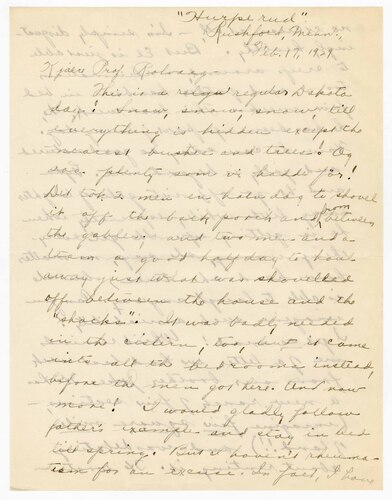 "Hurperud"
Rushford, Minn.,
Feb. 17, 1929
Kjære Prof. Rolvaag,
This is a regular Dakota
day! Snow, snow, snow, till
everything is hidden except the
bushes and trees! Og
plenty som vi hadde før!
Det tok 2 men in hola dag to shovel
it off the back porch and from between
the gables, and two men and a
team a good half day to haul
away just what was shovelled
off between the house and the
"shacks". It was badly needed
in the cistern, too, but it came
into all the bedrooms instead,
before the men got here. And now
more! I would gladly follow
father's example and stay in bed
till spring. But I haven't rheuma-
tism for an excuse. In fact, I have